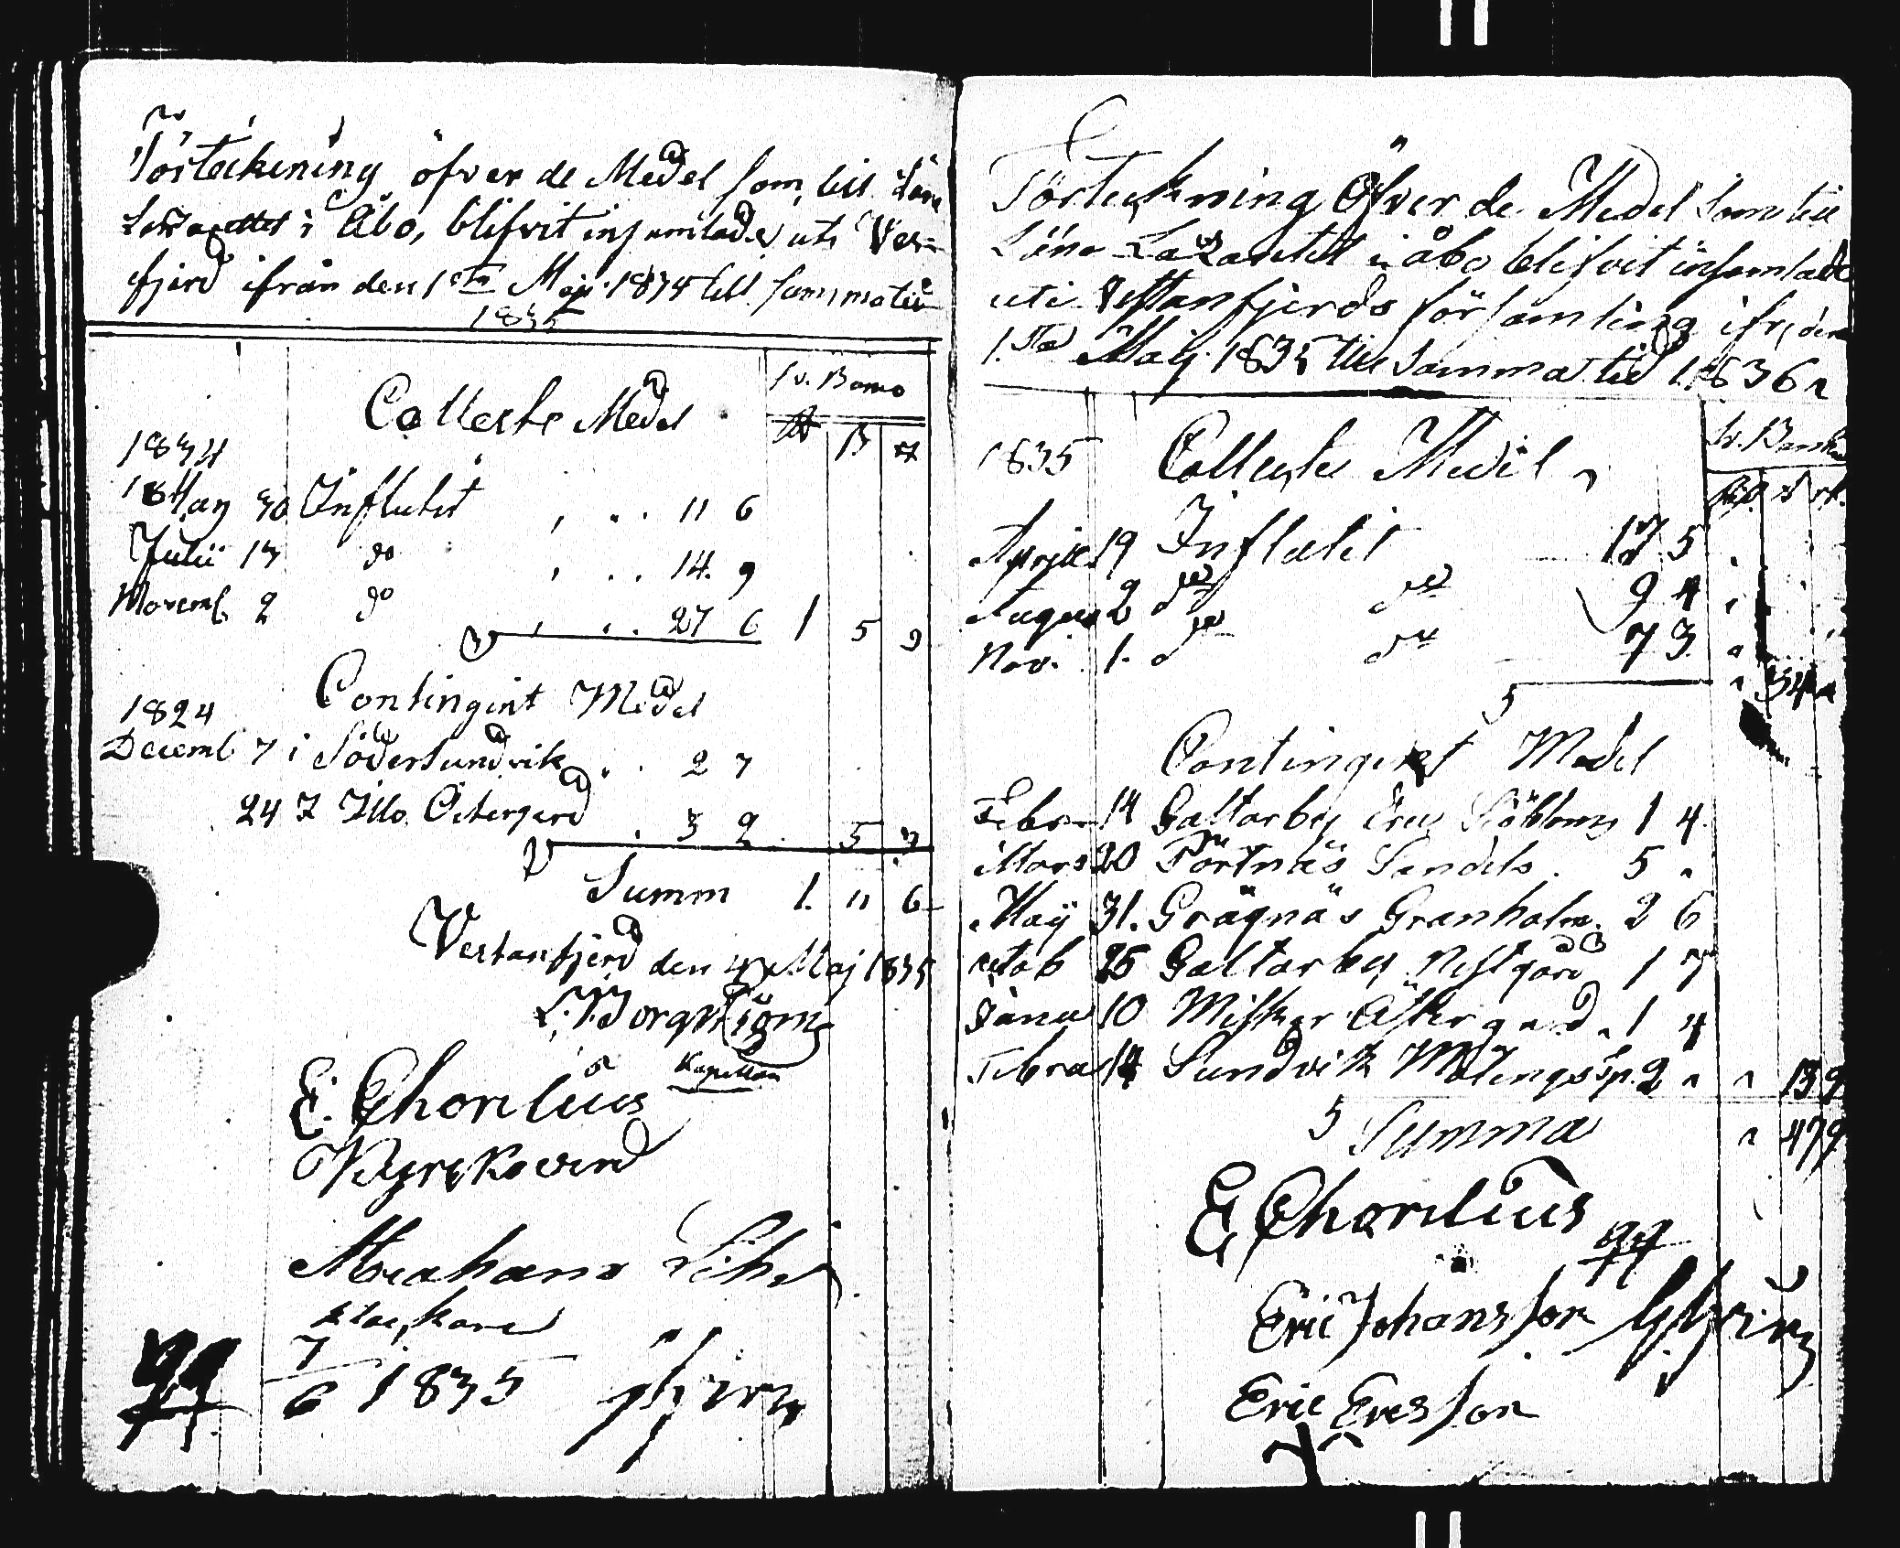 Förteckening öfver de Medel som till Läns
Lazarettet i Åbo, blifvit insamlade uti Ves-
fjerd ifrån den 1sta Maji 1834 till samma tid
1835
Sv. Banco
Collecte Medel
1834
Maj 30 Influtit 11 6
Julii 13 do 14. 9
Novemb. 2 do 27 6 1 5 9
Contingent Medel
1824
Decemb 7 i Södersundvik 2 7
24 I Illo Östergerd 3 2 5 9
Summ 1. 11 6
Vestanfjerd den 4 Maj 1835
E. Chorelius Kapellan
Kyrckovärd
Abraham
Klockare
7/6 1835
Förteckning Öfver de Medel som till
Läns Lazarettet i åbo blifvit insamlade
uti Vestanfjerds församling ifr. den
1.sta Maij 1835 till samma tid 1836
1835 Collecte Medel
Sv. Banko
Aprill 19 Influtit 17 5
August 2 do do 9 4
Nov. 1. do do 7 3
34
Contingent Medel
Febr 14 Galtarby Eric Sjöblom 1 4
Mars 20 Törtnäs Sandels 5
Maij 31. Grägnäs Granholm 2 6
octob 25 Galtarby Nestgård 1 7
Janu 10 Misskar Östergard 1 4
Febra 14 Sundvik 2 13 9
Summa 47 9
E Chorelius
Eric Johansson
Eric Ersson